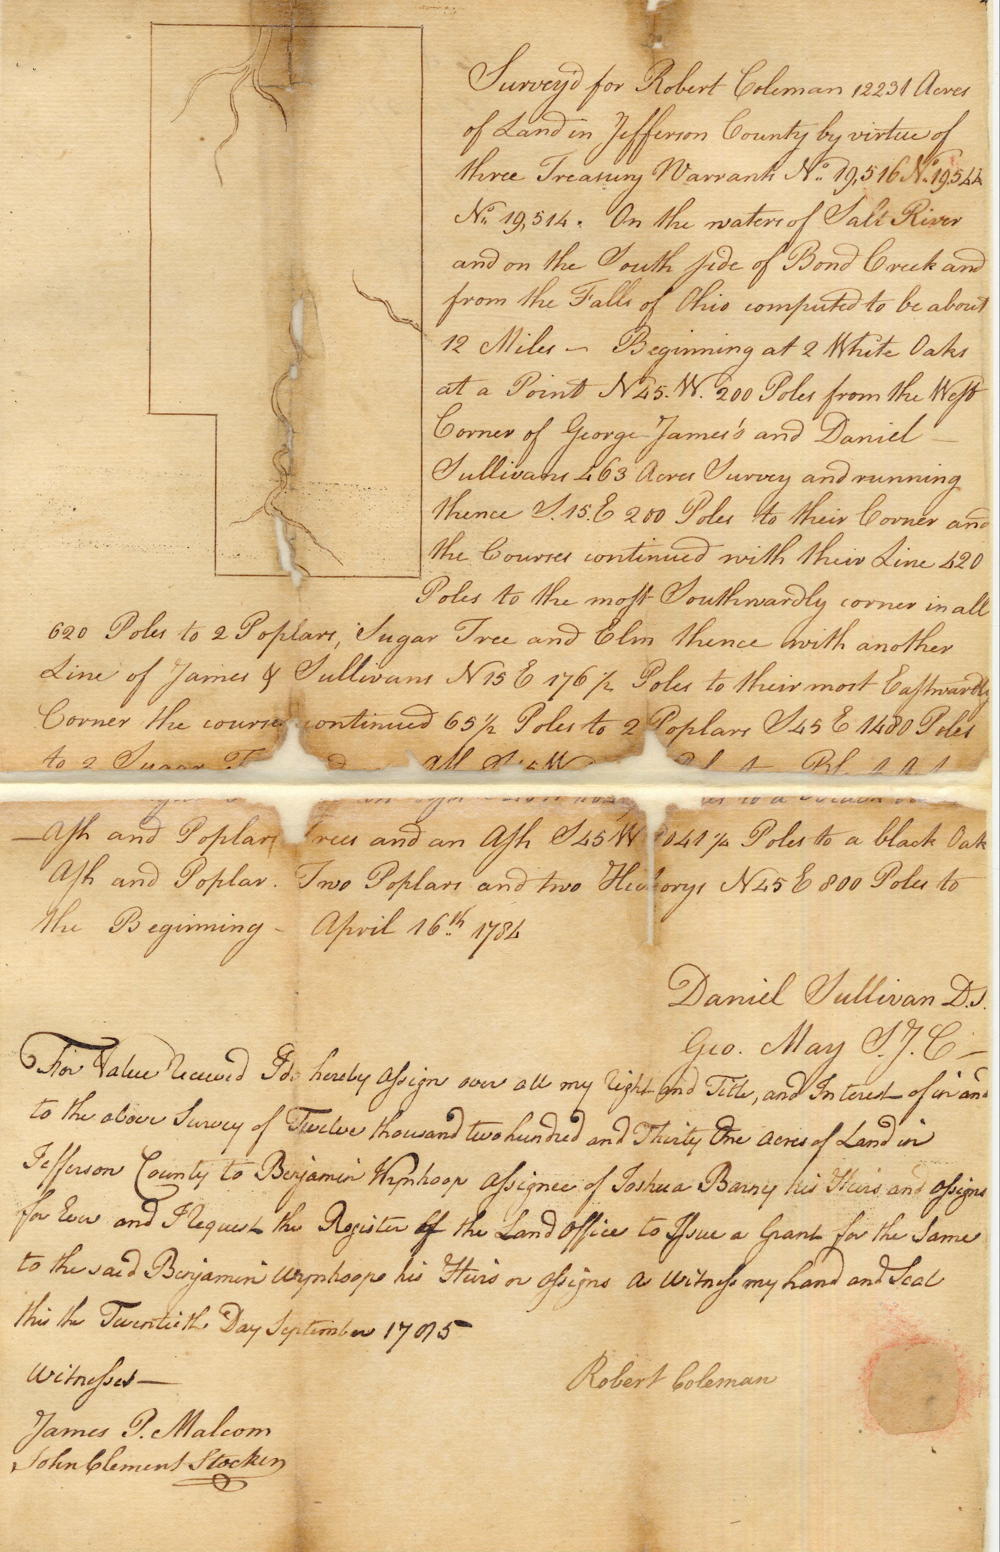 Survey'd for Robert Coleman 12231 Acres
of Land in Jefferson County by virtue of
three Treasury Warrants No. 19,516 No. 19,544
No. 19,514. On the waters of Salt River
and on the South side of Bond Creek and
from the Falls of Ohio computed to be about
12 Miles – Beginning at 2 White Oaks
at a Point N45.W. 200 Poles from the West
Corner of George James's and Daniel –
Sullivans 463 Acres Survey and running
thence S.15.E 200 Poles to their Corner and
the Courses continued with their Line 420
Poles to the most Southwardly corner in all
620 Poles to 2 Poplars, Sugar Tree and Elm thence with another
Line of James & Sullivans N15E 176 1/2 Poles to their most Eastwardly
Corner the course continued 65 1/2 Poles to 2 Poplars S45E 1480 Poles
to 2 Sugar
Ash and Poplar Trees and an Ash S45W 1/4 Poles to a black Oak
Ash and Poplar. Two Poplars and two Hickorys N45E 800 Poles to
the Beginning – April 16th 1784
Daniel Sullivan D.S.
Geo. May S.J.C –
For Value Received I do hereby assign over all my Right and Title, and Interest of in and
to the above Survey of Twelve thousand two hundred and Thirty One acres of Land in
Jefferson County to Benjamin Wynhoop assignee of Joshua Barny his Heirs and assigns
for Ever and I Request the Register of the Land office to Issue a Grant for the Same
to the said Benjamin Wynhoop his Heirs or assigns as Witness my hand and Seal
this the Twentieth Day September 1785
Witnesses –
Robert Coleman
James P. Malcom
John Clement Stocker